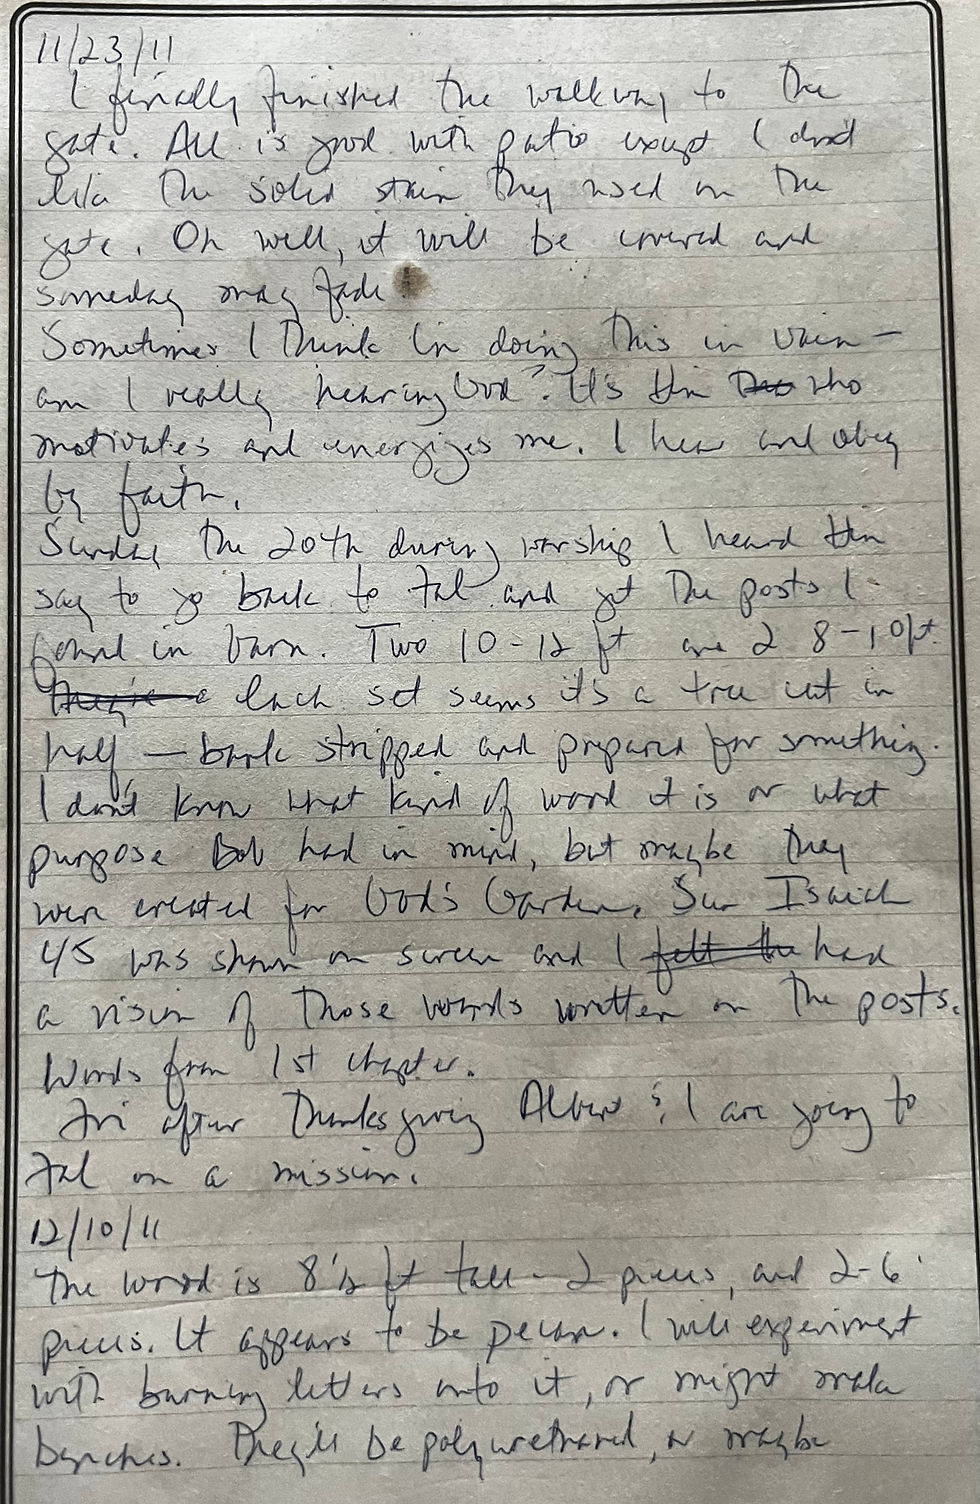 11/23/11
I finally finished the walkway to the
gate. All is good with patio except I don't
like the solid stain they used on the
gate. Oh well, it will be covered and
someday may fade
Sometimes I think I'm doing this in vain —
am I really hearing God? It's Him who
motivates and energizes me. I hear and obey
by faith.
Sunday the 20th during worship I heard Him
say to go back to Tal and get the posts I
found in barn. Two 10-12 ft and 2 8-10ft.
Each set seems it's a tree cut in
half — bark stripped and prepared for something.
I don't know what kind of wood it is or what
purpose Bob had in mind, but maybe they
were created for God's Garden. Sun Isaiah
45 was shown on screen and I felt the had
a vision of those words written on the posts.
Words from 1st chapter.
Fri after Thanksgiving & I are going to
Tal on a mission.
12/10/11
The wood is 8½ ft tall - 2 pieces, and 2-6'
pieces. It appears to be pecan. I will experiment
with burning letters onto it, or might make
benches. They'll be polyurethaned, or maybe